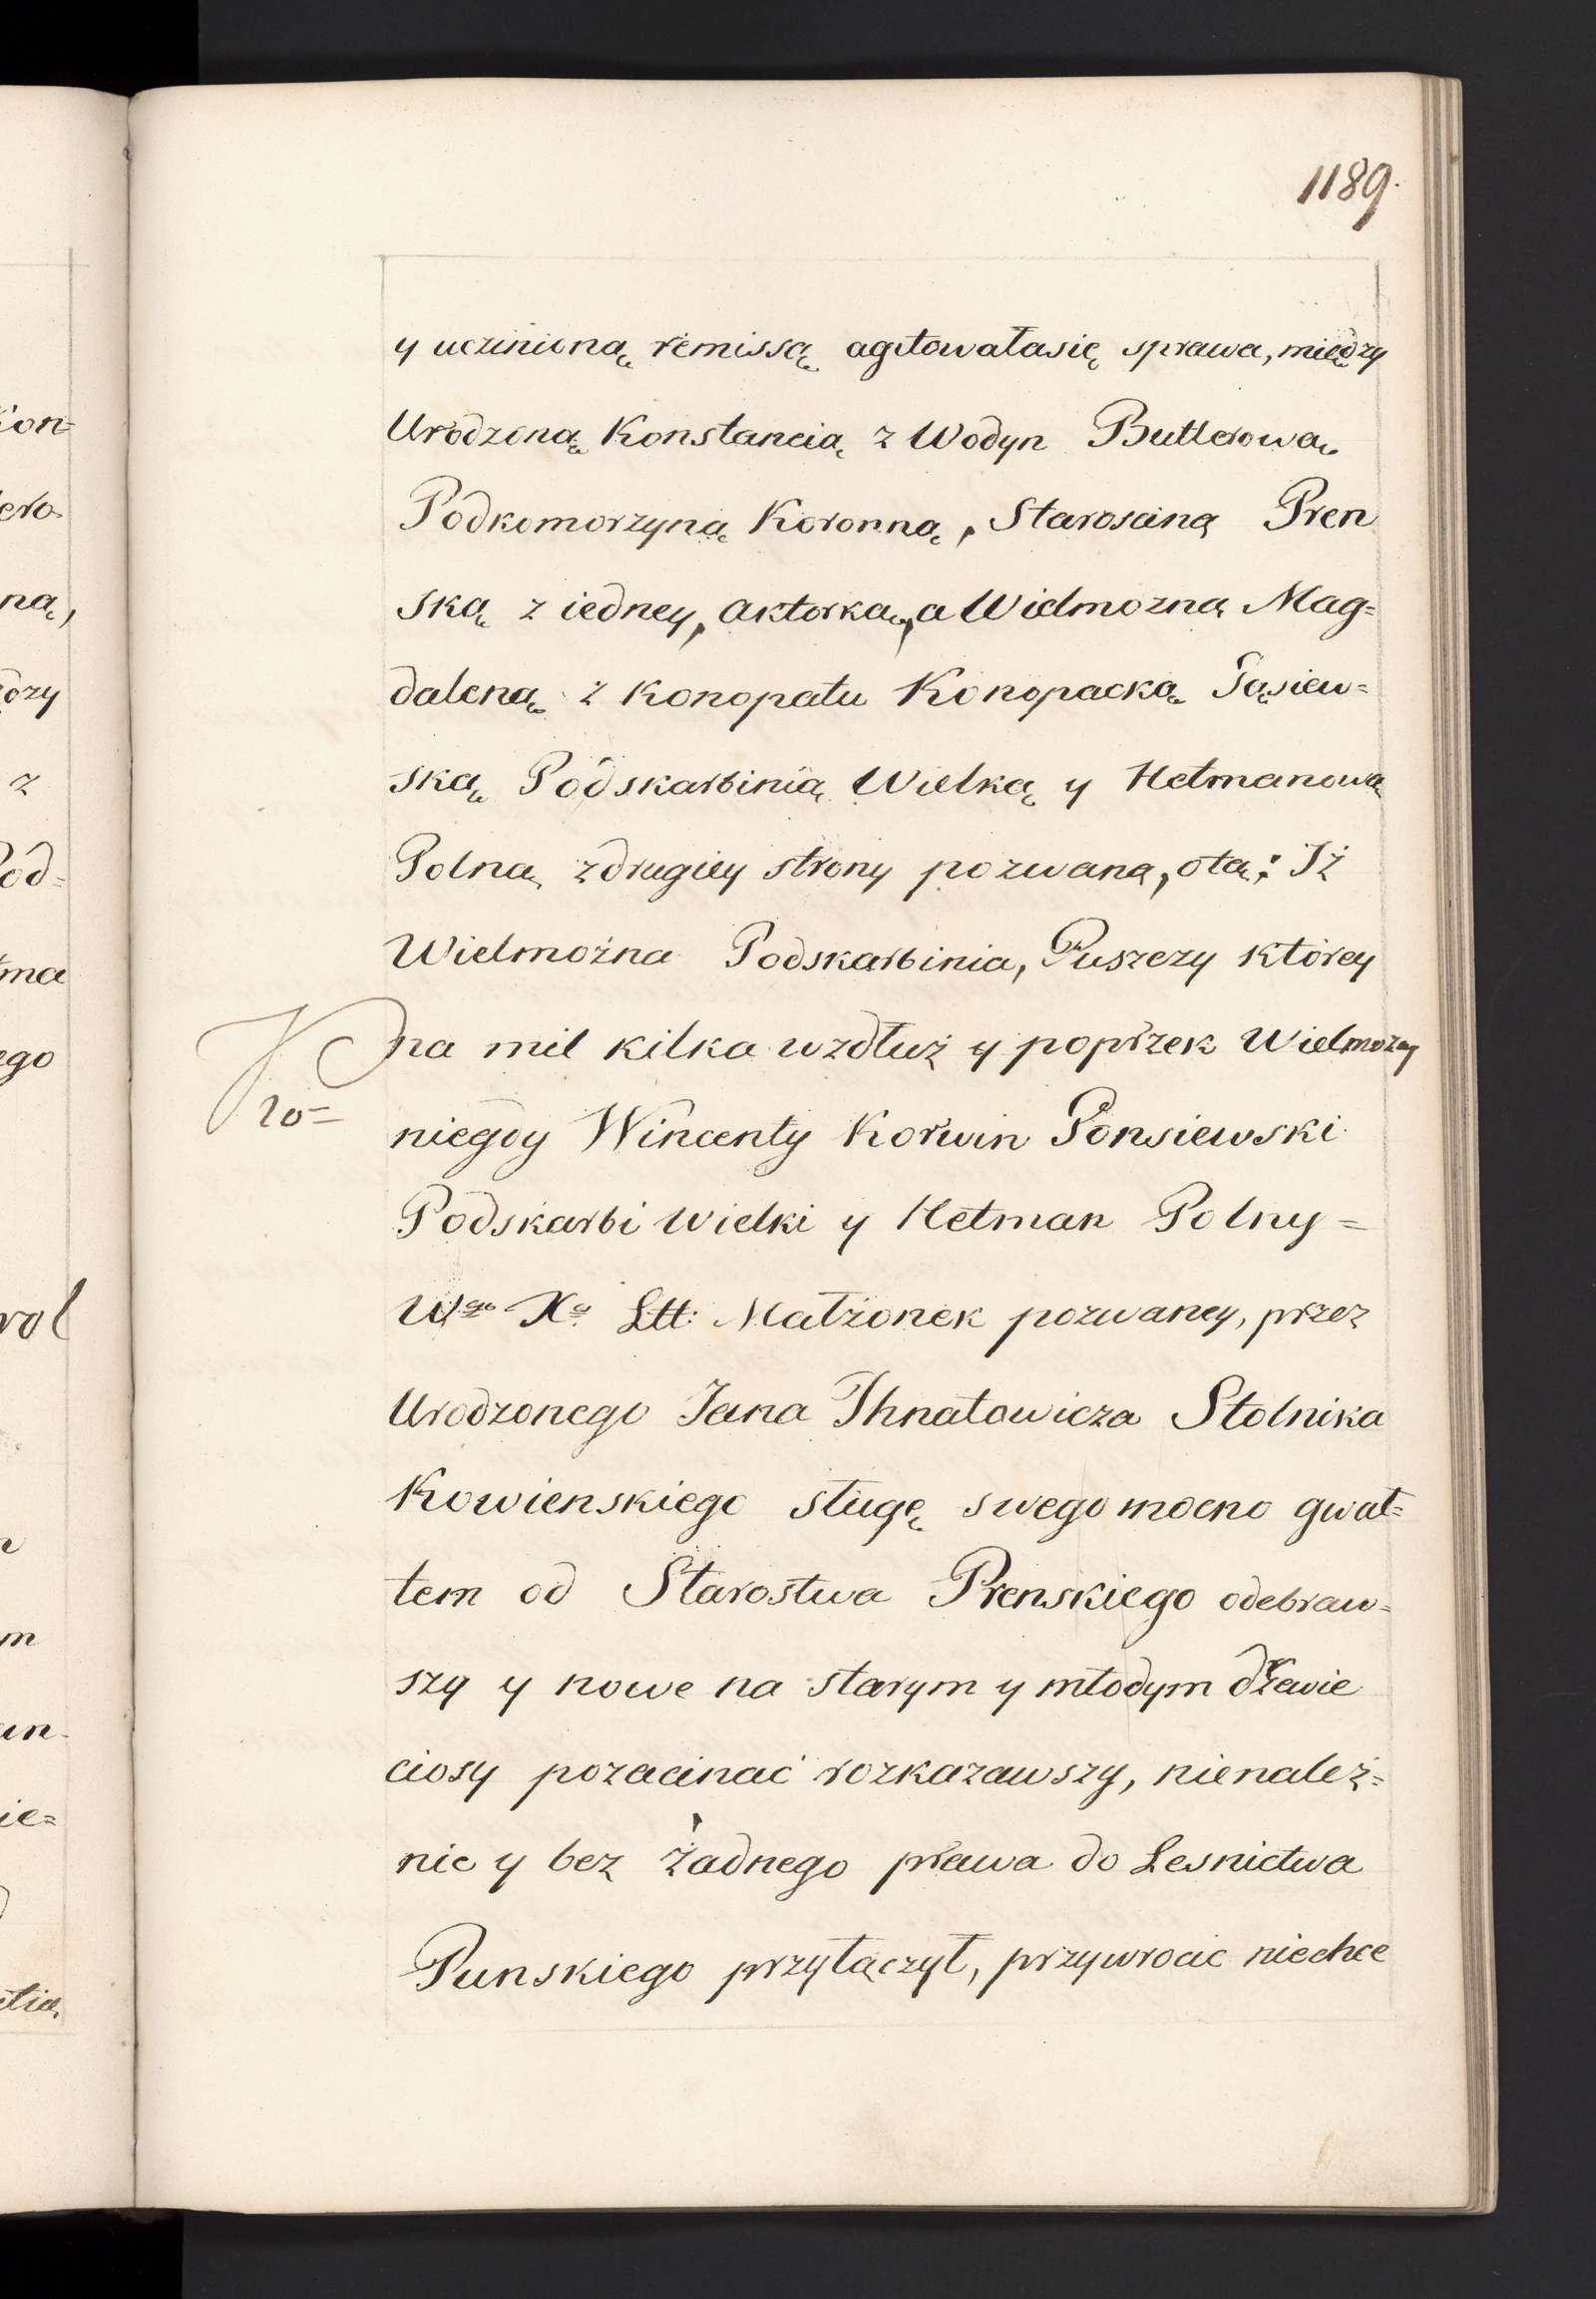 1189.
y uczinioną remissą agitowałasię sprawa, między
Urodzoną Konstancią z Wodyn Butlerową
Podkomorzyną Koronną, Starosciną Pren
ską z iedney, aktorką, a Wielmozną Mag=
daleną z Konopatu Konopacką Gąsiew=
ską Podskarbinią Wielką y Hetmanową
Polną zdrugiey strony pozwaną, otą: Iż
Wielmożna Podskarbinia, Puszczy ktorey
na mil kilka wzdłuż y poprzek Wielmozny
niegdy Wincenty Korwin Gonsiewski
Podskarbi Wielki y Hetman Polny =
Wgo Xa Ltt: Małżonek pozwaney, przez
Urodzonego Jana Ihnatowicza Stolnika
Kowienskiego sługę swego mocno gwał=
tem od Starostwa Prenskiego odebraw=
szy y nowe na starym y młodym drzewie
ciosy pozacinać rozkazawszy, nienależ=
nie y bez żadnego prawa do Lesnictwa
Punskiego przyłączył, przywrocic niechce
Kon=
na,
dzy
z
Pod=
ego
rol
m
ie=